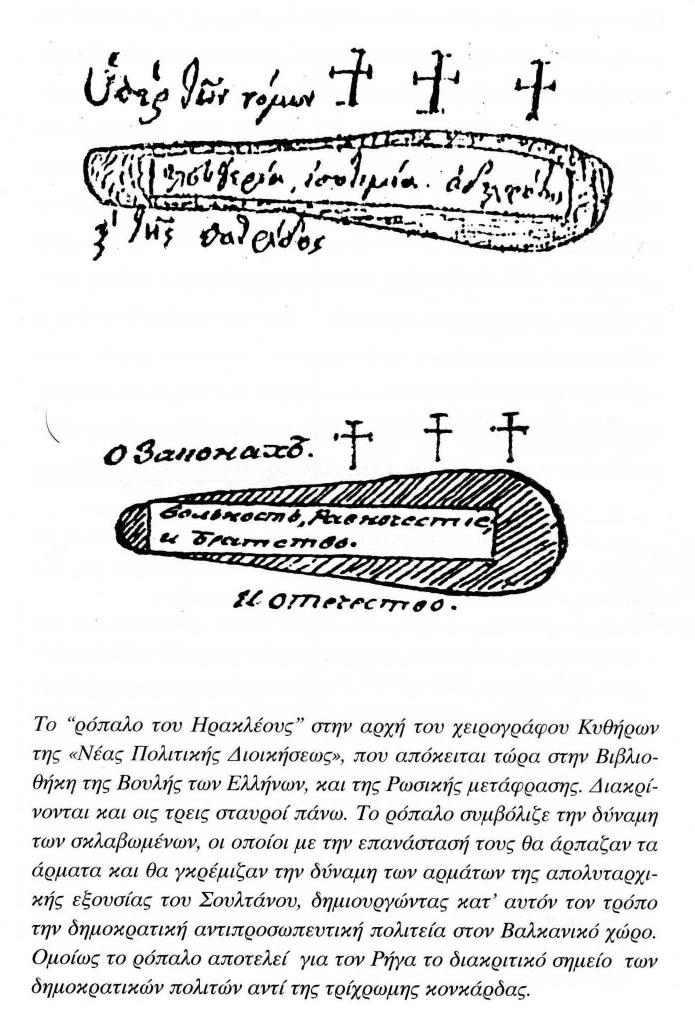 Ὑπὲρ τῶν νόμων
ἐλευθερία, ἰσοτιμία. ἀδελφότης
ξ' τῆς πατρίδος
О Законахъ.
вольность, равночестіе,
и братство.
и отечество.
Το “ρόπαλο του Ηρακλέους” στην αρχή του χειρογράφου Κυθήρων
της «Νέας Πολιτικής Διοικήσεως», που απόκειται τώρα στην Βιβλιο-
θήκη της Βουλής των Ελλήνων, και της Ρωσικής μετάφρασης. Διακρί-
νονται και οις τρεις σταυροί πάνω. Το ρόπαλο συμβόλιζε την δύναμη
των σκλαβωμένων, οι οποίοι με την επανάστασή τους θα άρπαζαν τα
άρματα και θα γκρέμιζαν την δύναμη των αρμάτων της απολυταρχι-
κής εξουσίας του Σουλτάνου, δημιουργώντας κατ’ αυτόν τον τρόπο
την δημοκρατική αντιπροσωπευτική πολιτεία στον Βαλκανικό χώρο.
Ομοίως το ρόπαλο αποτελεί για τον Ρήγα το διακριτικό σημείο των
δημοκρατικών πολιτών αντί της τρίχρωμης κονκάρδας.